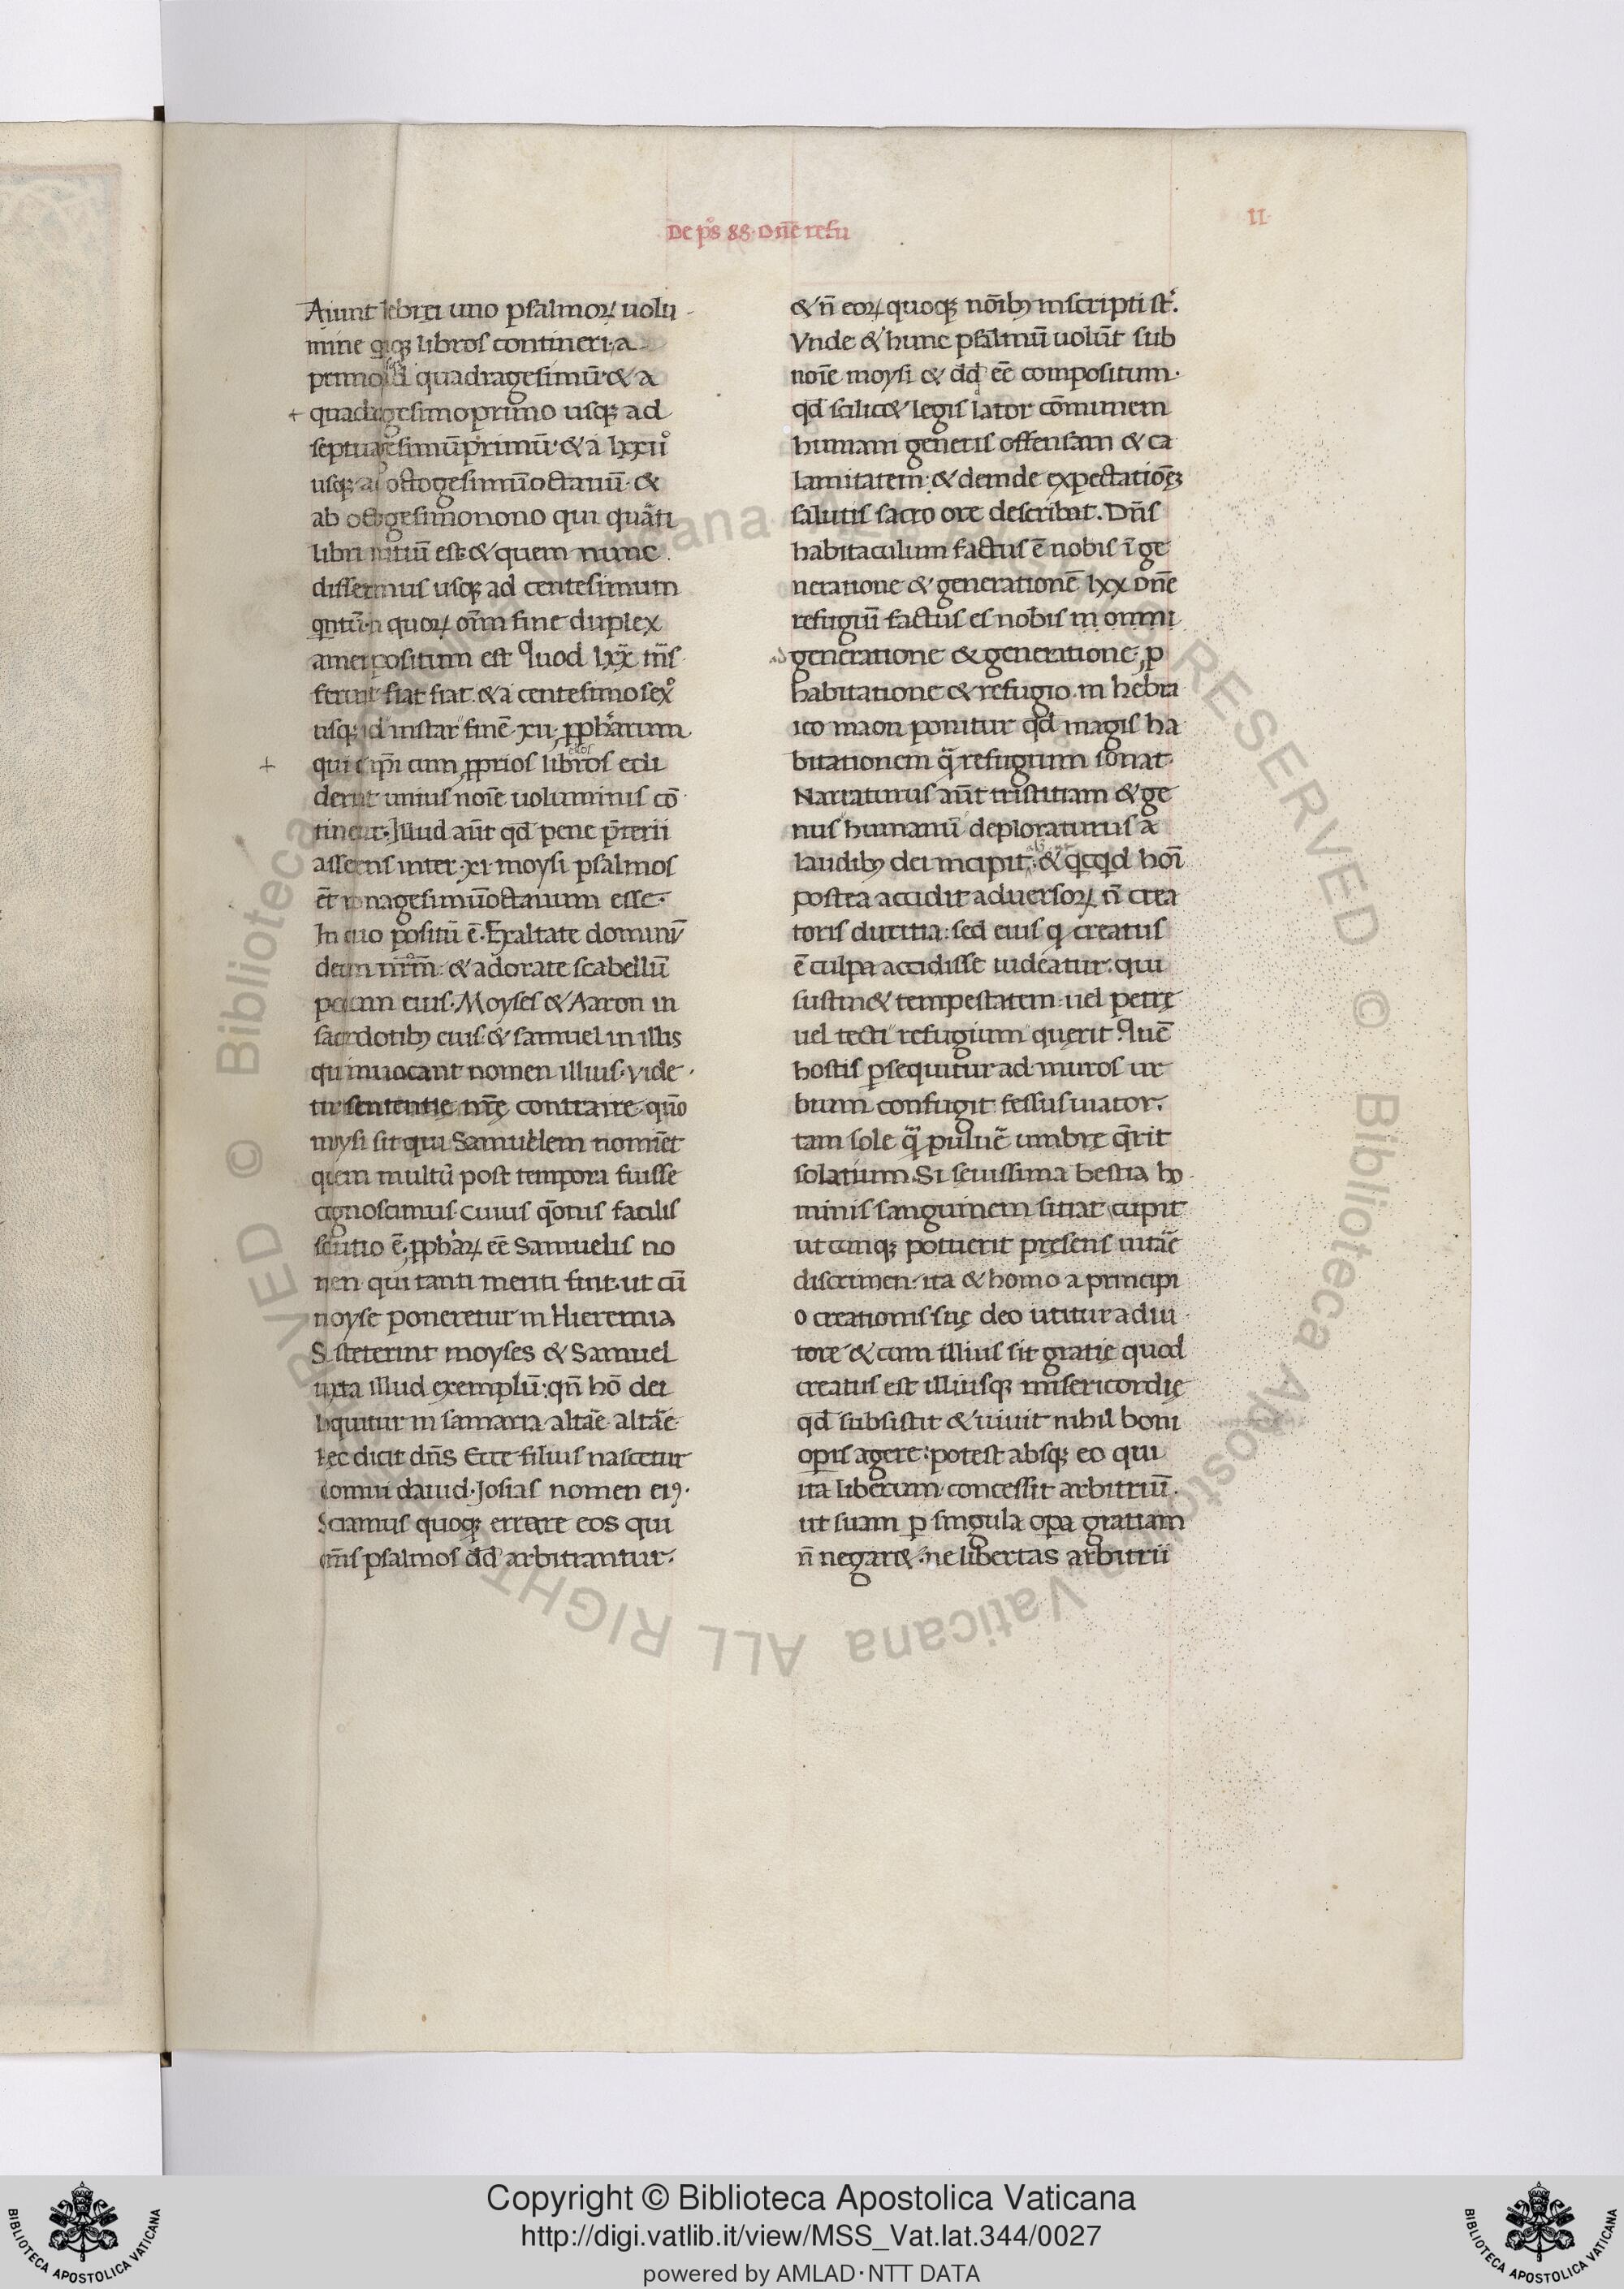 De ps 88. Dn̄e refu
II
Aiunt hebrei uno psalmoꝝ uolu
mine quīqꝫ libros contineri; a
primo usqꝫ ad quadragesimū; & a
quadragesimo primo usqꝫ ad
septuagesimūprimū; & a lxxii°
usqꝫ ad octogesimūoctauū; &
ab octogesimonono qui quarti
libri initiū est; & quem nunc
disserimus usqꝫ ad centesimum
quintū; in quoꝝ om̄ium fine duplex
amen positum est quod lxx īt̄s
ferunt fiat fiat. & a centesimo sexto
usqꝫ ad instar finē. xii. ꝓph̄arum
qui & ip̄i cum ꝓprios libros edi
derint unius noīe uoluminis cō
tinētur. Illud aūt qd̄ pene p̄terii
asserens inter .xi. moysi psalmos
ēt nonagesimūoctauum esse.
In quo positū ē. Exaltate dominū
deum nr̄m̄: & adorate scabellū
pedum eius. Moyses & Aaron in
sacerdotibꝫ eius & samuel in illis
qui inuocant nomen illius. vide
tur sententię nr̄ę contraire. quō
moysi sit qui Samuelem nomiēt
quem multū post tempora fuisse
cognoscimus. Cuius q̄onis facilis
solutio ē. ꝓph̄aꝝ eē Samuelis no
men qui tanti meriti fuit. ut cū
moyse poneretur in Hieremia
Si steterint moyses & Samuel
iuxta illud exemplū: qn̄ hō dei
loquitur in samaria. altāe altāe
hęc dicit dn̄s Ecce filius nascetur
domui dauid. Josias nomen eiꝰ.
Sciamus quoqꝫ errare eos qui
om̄s psalmos dd̄ arbitrantur.
& n̄ eoꝝ quoqꝫ noībꝫ inscripti st̄.
Vnde & hunc psalmū uolūt sub
noīe moysi & dd̄ eē compositum.
qd̄ scilic& legis lator cōmunem
humani generis offensam & ca
lamitatem: & deinde expectationē
salutis sacro ore describat. Dn̄s
habitaculum factus ē nobis ī ge
neratione & generationē lxx dn̄e
refugiū factus es nobis in omni
generatione & generatione; ꝓ
habitatione & refugio. in hebra
ico maon ponitur qd̄ magis ha
bitationem q̄ refugium sonat.
Narraturus aūt tristitiam & ge
nus humanū deploraturus a
laudibꝫ dei incipit. & qicqd̄ hōi
postea accidit aduersoꝝ n̄ crea
toris duritia: sed eius q̄ creatus
ē culpa accidisse uideatur. qui
sustin& tempestatem. uel petrę
uel tecti refugium querit. Quē
hostis ꝑsequitur ad muros ur
bium confugit. fessus uiator.
tam sole q̄ puluē umbrę q̄rit
solatium. Si seuissima bestia ho
minis sanguinem sitiat. cupit
ut cumqꝫ potuerit presens uitāe
discrimen. ita & homo a principi
o creationis suę deo utitur adiu
tore & cum illius sit gratię quod
creatus est illiusqꝫ misericordię
qd̄ subsistit & uiuit. nihil boni
opis agere potest absqꝫ eo qui
ita liberum concessit arbitriū.
ut suam ꝑ singula oꝑa gratiam
n̄ negar&. ne libertas arbitrii
Copyright © Biblioteca Apostolica Vaticana
http://digi.vatlib.it/view/MSS_Vat.lat.344/0027
powered by AMLAD·NTT DATA